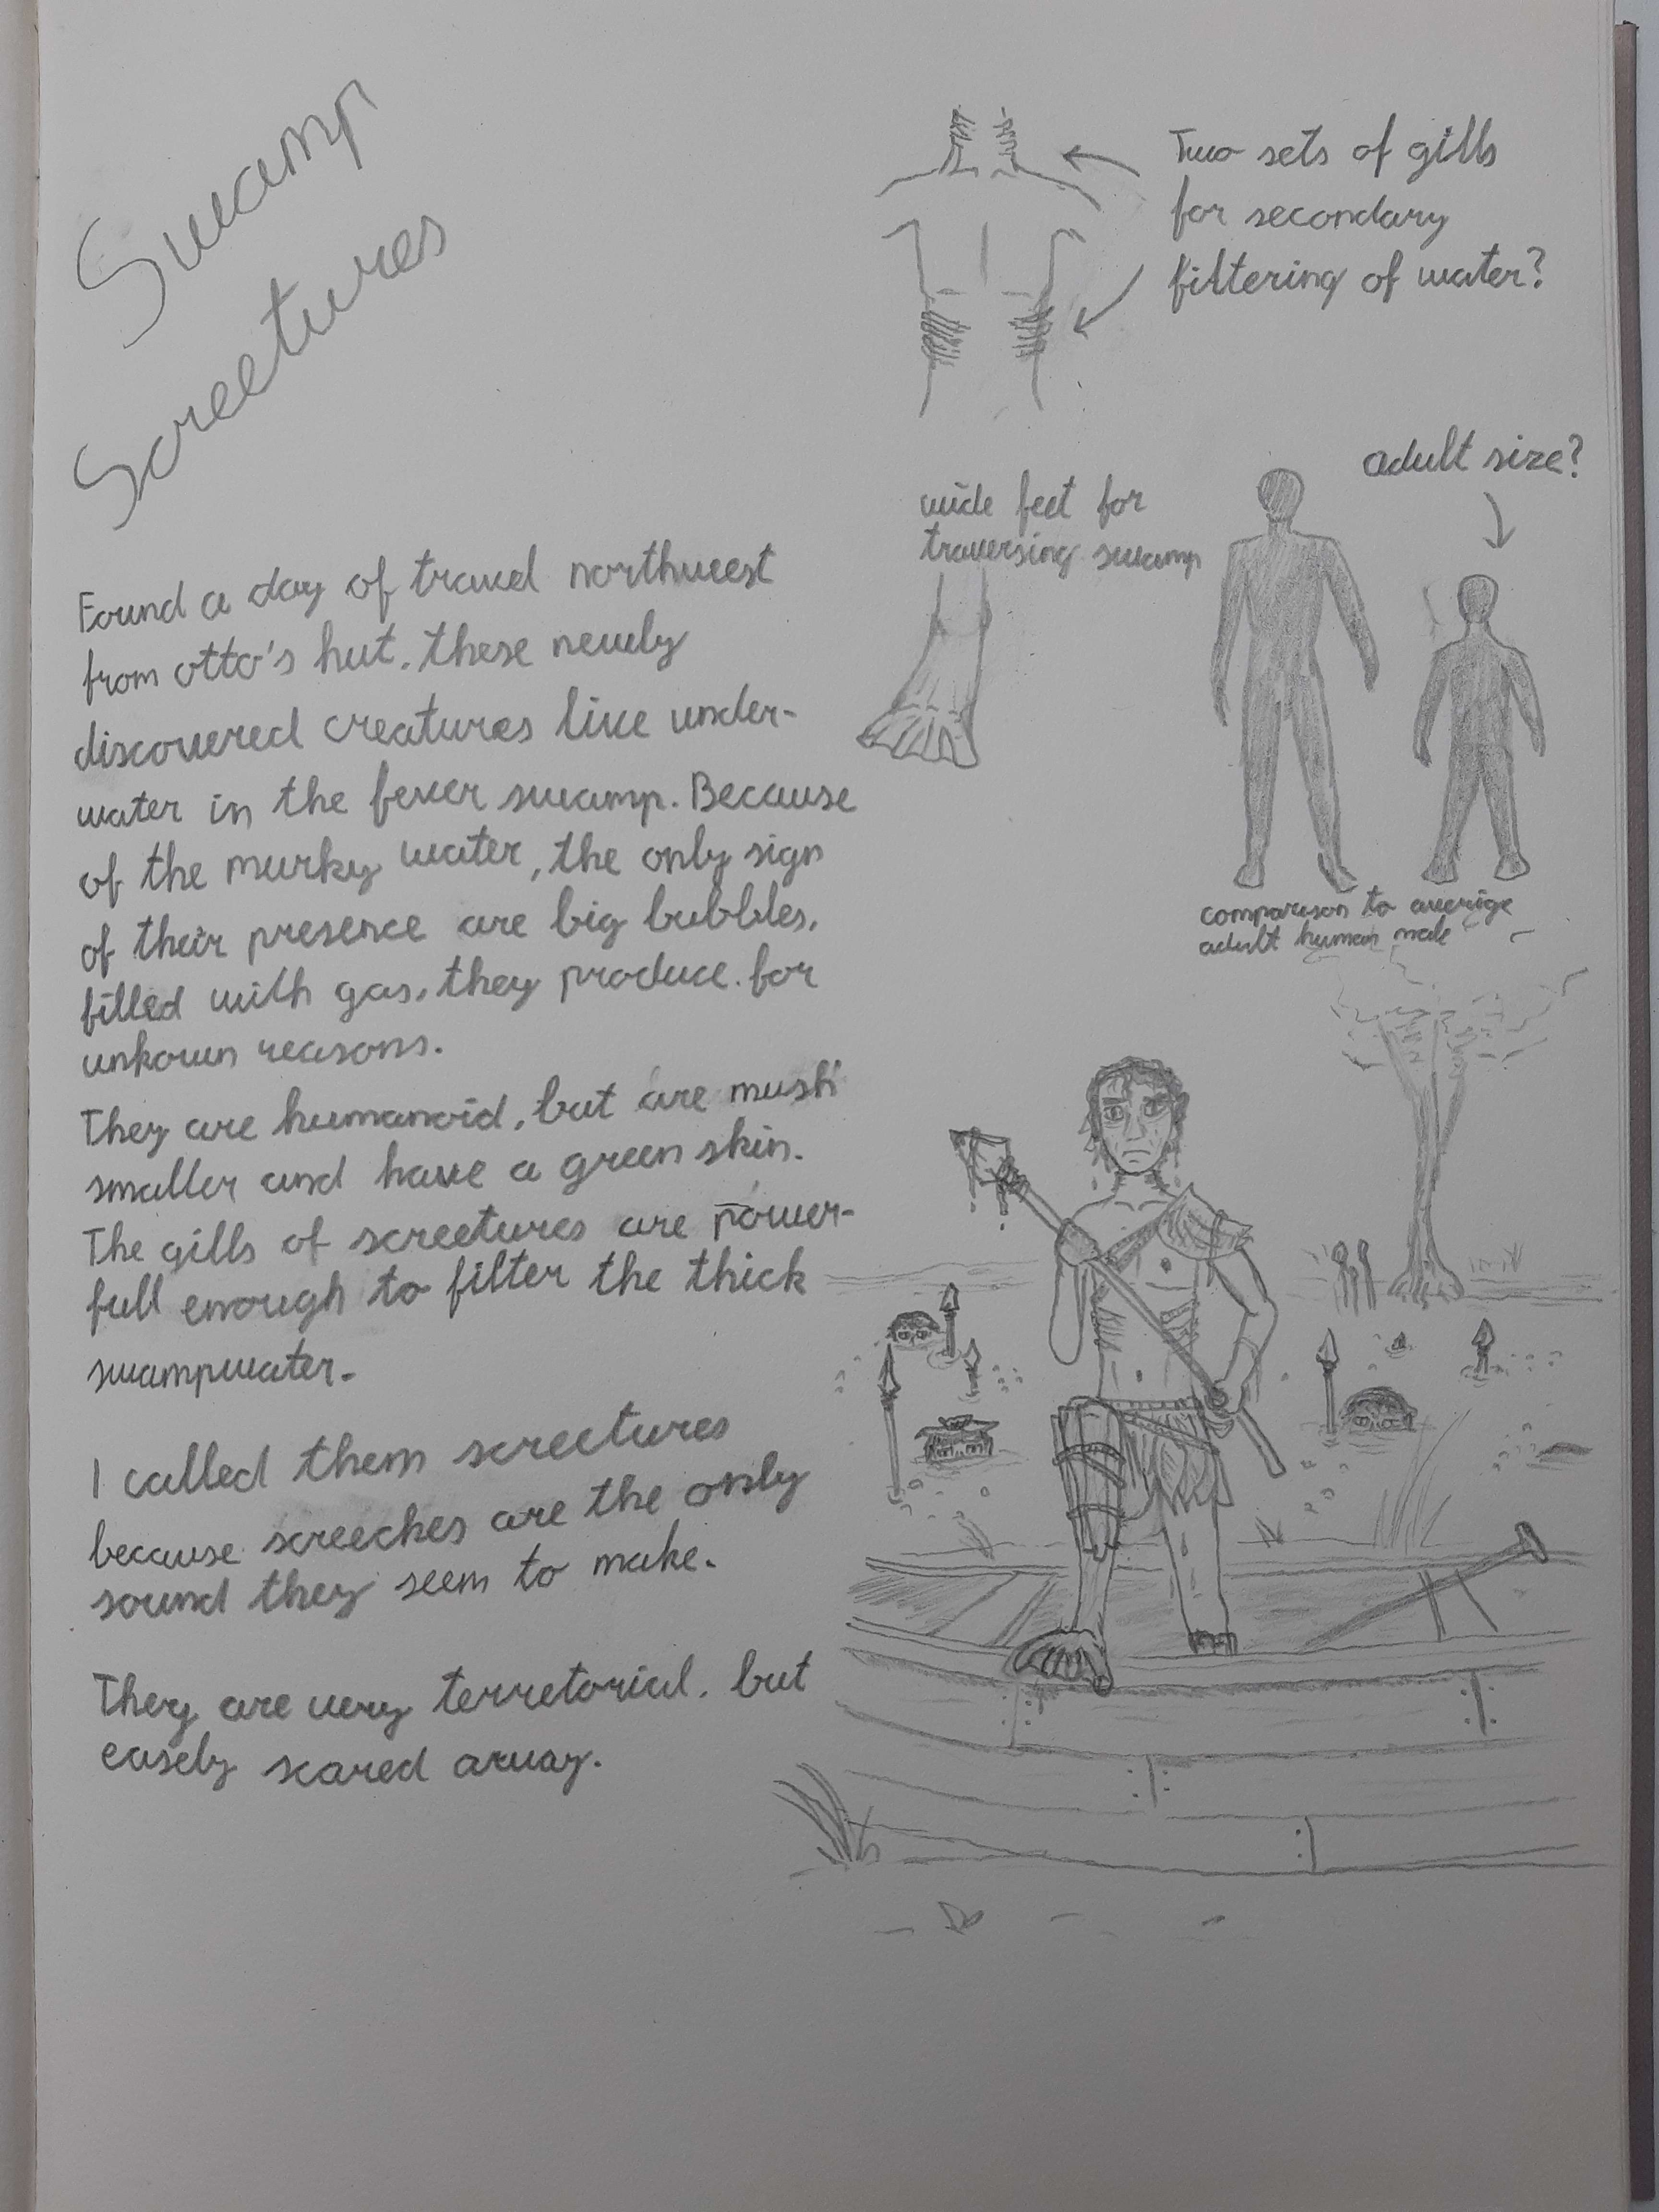 Swamp
Screetures
Found a day of travel northwest
from otto's hut, these newly
discovered creatures live under-
water in the fever swamp. Because
of the murky water, the only sign
of their presence are big bubbles,
filled with gas, they produce for
unkown reasons.
They are humanoid, but are mush
smaller and have a green skin.
The gills of screetures are power-
full enough to filter the thick
swampwater.
I called them screetures
because screeches are the only
sound they seem to make.
They are very terretorial, but
easely scared away.
Two sets of gills
for secondary
filtering of water?
wide feet for
traversing swamp
adult size?
comparison to averige
adult human male